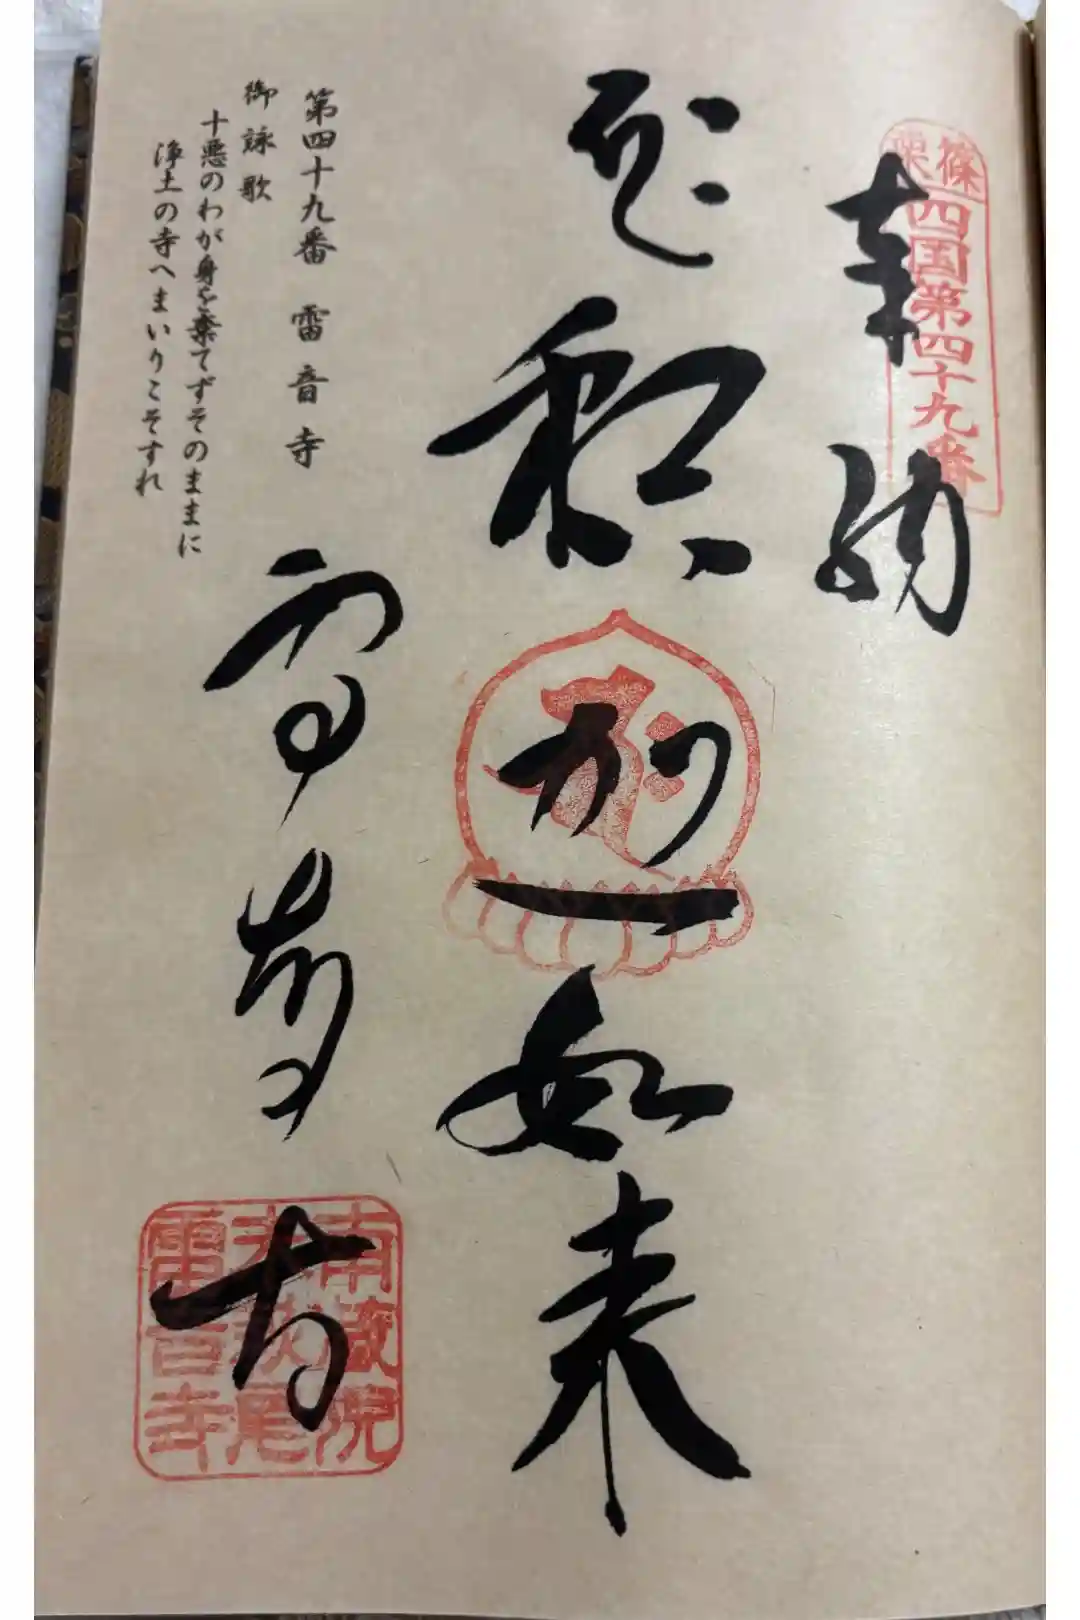 篠栗
四国第四十九番
奉納
釈迦如来
第四十九番 雷音寺
御詠歌
十悪のわが身を棄てずそのままに
浄土の寺へまいりこそすれ
雷音寺
南蔵院
萩尾
雷音寺